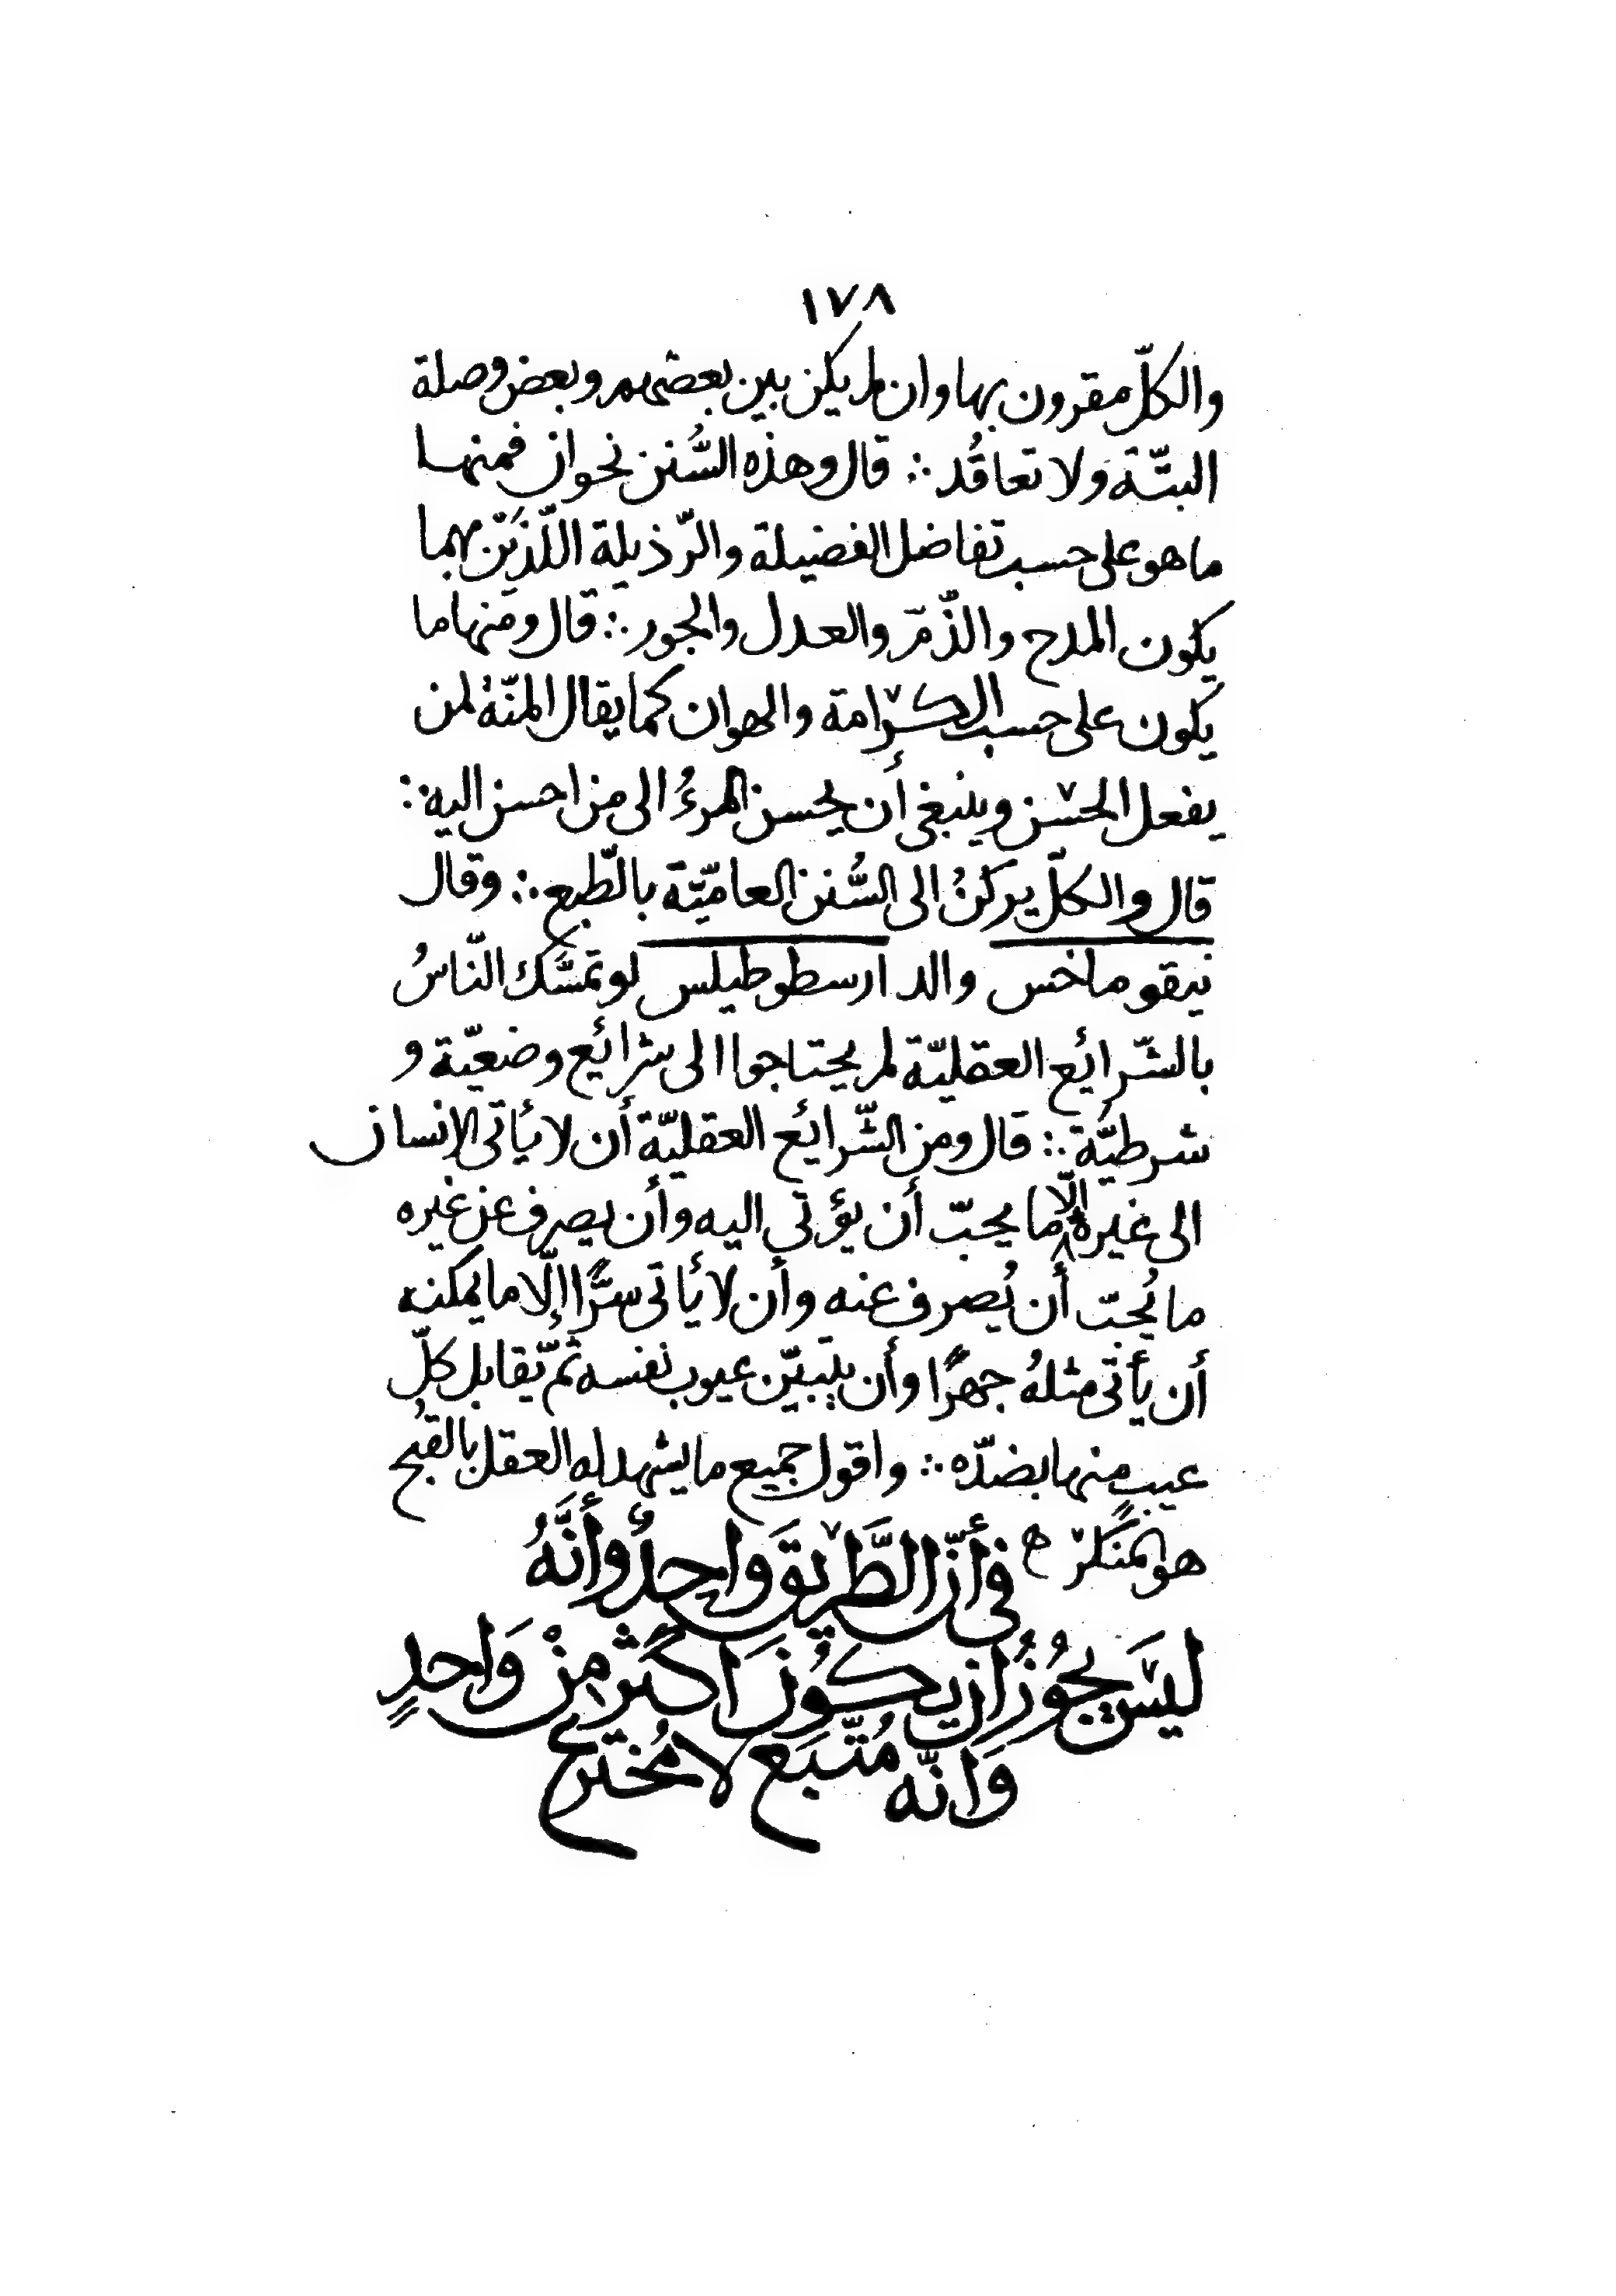 ١٧٨
والكلّ مقرون بها وان لم يكن بين بعضهم وبعض وصلة
البتّة ولا تعاقُد ∴ قال وهذه السُّنن نحوان فمنها
ما هو على حسب تفاضل الفضيلة والرّذيلة اللّذَيْن بهما
يكون المدح والذّمّ والعدل والجور ∴ قال ومنها ما
يكون على حسب الكرامة والهوان كما يقال المنّةُ لمن
يفعل الحسن وينبغي أن يحسن المرءُ الى من احسن اليه ∴
قال والكلّ يركنُ الى السُّنن العاميّة بالطّبع ∴ وقال
نيقوماخس والد ارسطوطيلس لو تمسَّك النّاسُ
بالشّرائع العقليّة لم يحتاجوا الى شرائع وضعيّة و
شرطيّة ∴ قال ومن الشّرائع العقليّة أن لا يأتى الإنسان
الى غيره إلّا ما يحبّ أن يؤتى اليه وأن يصرف عن غيره
ما يُحبّ أن يُصرف عنه وأن لا يأتى سرًّا إلّا ما يمكنه
أن يأتى مثلهُ جهرًا وأن يتبيّن عيوب نفسه ثمّ يقابل كلّ
عيبٍ منها بضدّه ∴ واقول جميع ما يشهد له العقل بالقُبح
هو المنكر ه فى أنّ الطَّريقَ وَاحدٌ وأنَّهُ
ليسَ يجُوزُ ان يكُونَ اكثر مِنْ وَاحدٍ
وَانّه مُتّبَع لا مُخترع